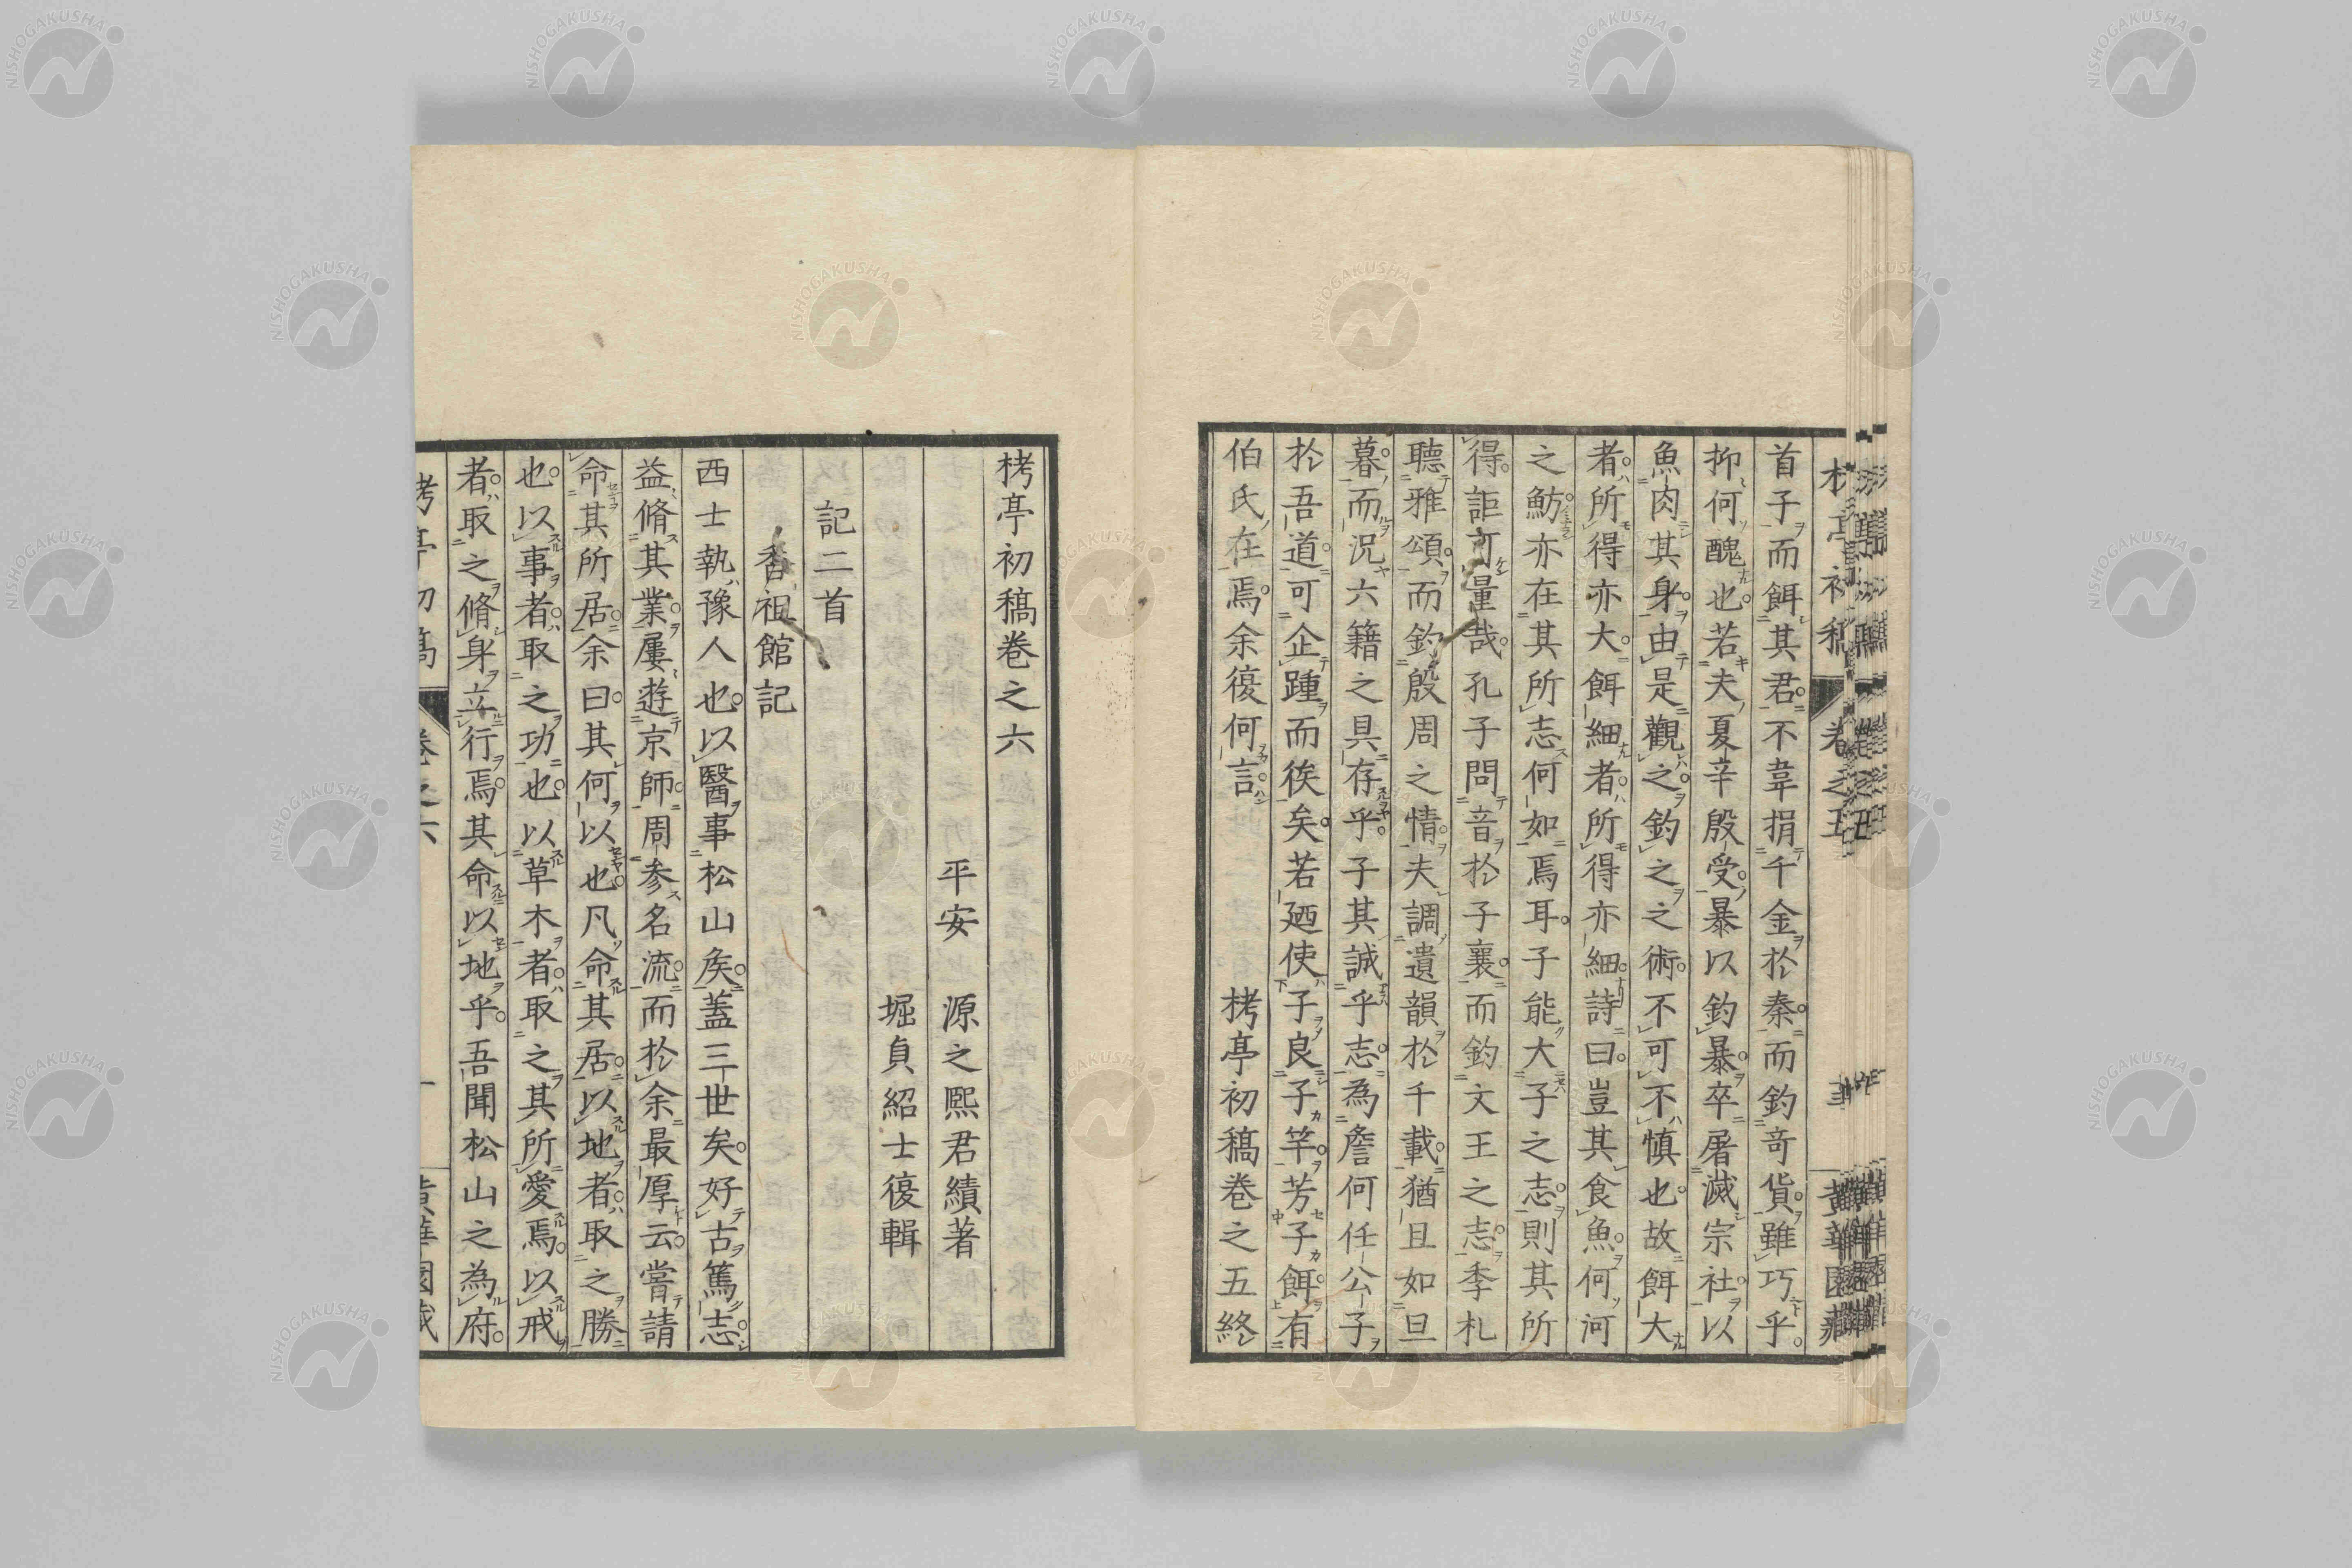 首子而餌其君不韋捐千金於秦而釣奇貨雖巧乎
抑何醜也若夫夏辛殷受暴以釣暴卒屠滅宗社以
魚肉其身由是觀之釣之之術不可不慎也故餌大
者所得亦大餌細者所得亦細詩曰豈其食魚何河
之魴亦在其所志何如焉耳子能大子之志則其所
得詎可量哉孔子問音於子襄而釣文王之志季札
聽雅頌而釣殷周之情夫調遺韻於千載猶且如旦
暮而況六籍之具存乎子其誠乎志為詹何任公子
於吾道可企踵而俟矣若廼使子良子竿芳子餌有
伯氏在焉余復何言
栲亭初稿卷之五終
栲亭初稿卷之六
平安 源之熈君績著
堀貞紹士復輯
記二首
香祖館記
西士執豫人也以醫事松山矦蓋三世矣好古篤志
益脩其業屢遊京師周参名流而於余最厚云嘗請
命其所居余曰其何以也凡命其居以地者取之勝
也以事者取之功也以草木者取之其所愛焉以戒
者取之脩身立行焉其命以地乎吾聞松山之為府
栲亭初稿 卷之六 一 黄華園蔵
NISHOGAKUSHA